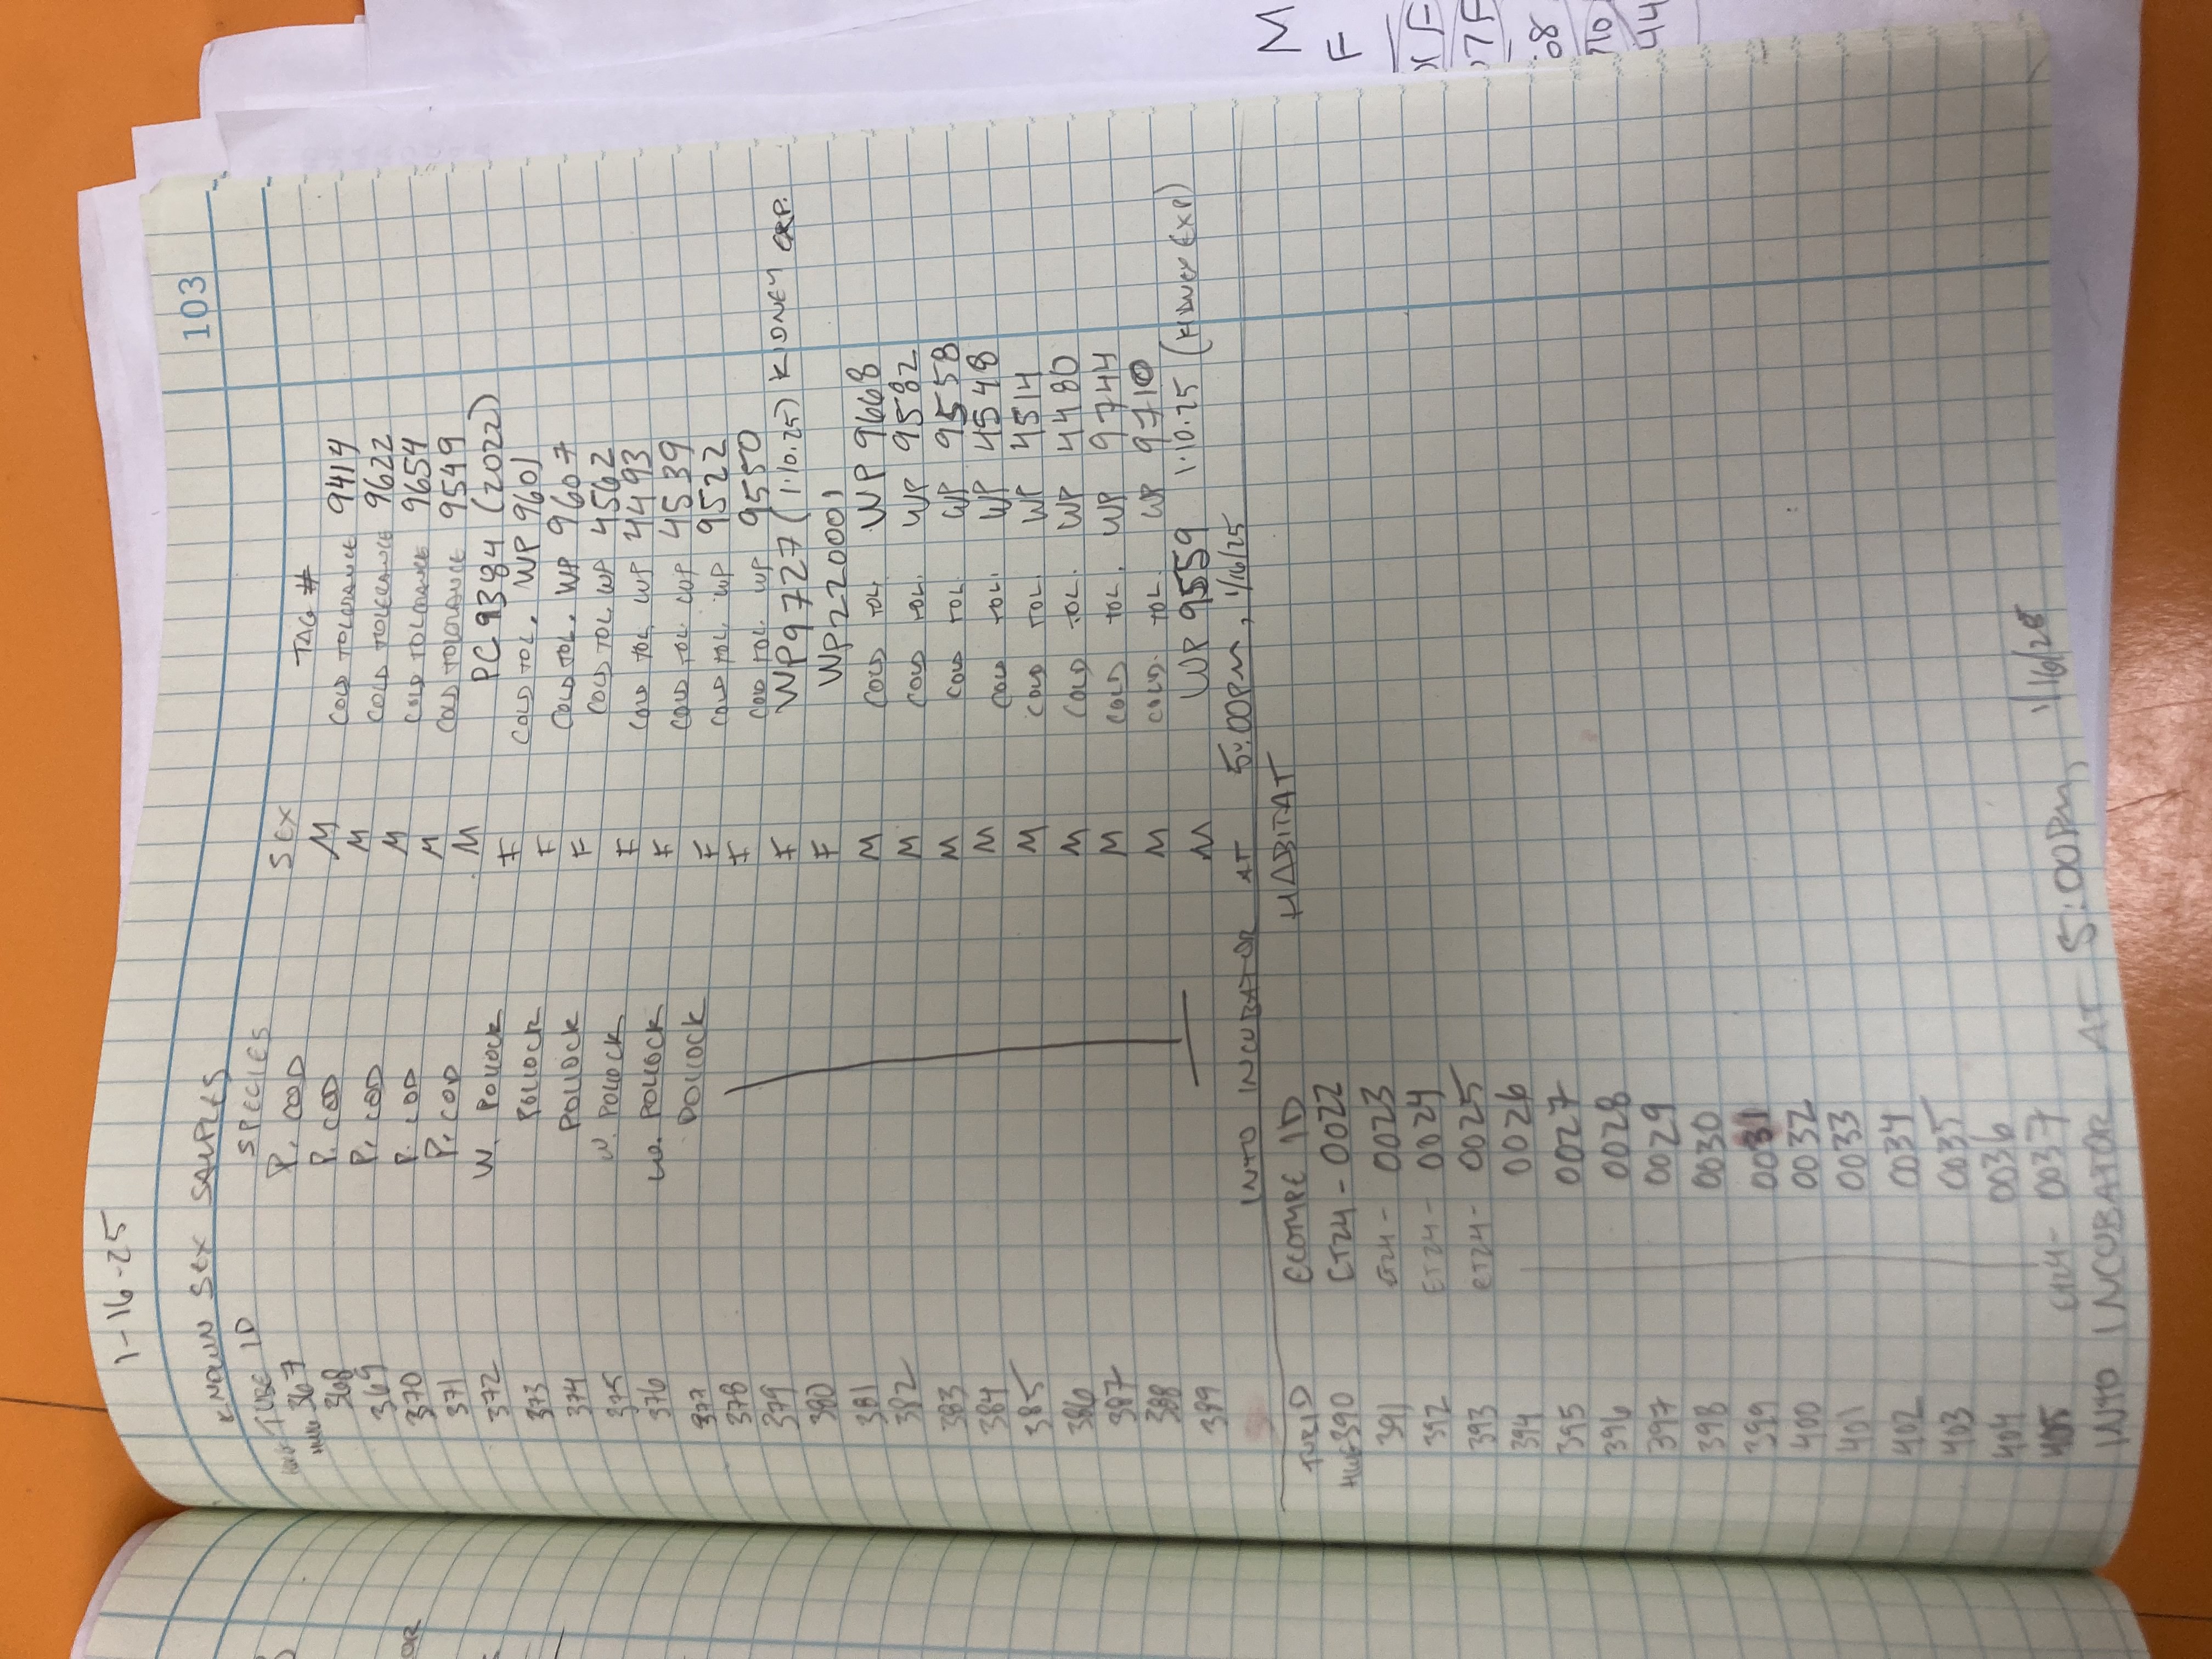 1-16-25
103
KNOWN SEX SAMPLES
TUBE ID SPECIES SEX TAG #
367 P. COD M COLD TOLERANCE 9414
368 P. COD M COLD TOLERANCE 9622
369 P. COD M COLD TOLERANCE 9654
370 P. COD M COLD TOLERANCE 9549
371 P. COD M PC 9384 (2022)
372 W. POLLOCK F COLD TOL. WP 9601
373 POLLOCK F COLD TOL. WP 9607
374 POLLOCK F COLD TOL. WP 4562
375 W. POLLOCK F COLD TOL WP 4493
376 W. POLLOCK F COLD TOL WP 4539
377 POLLOCK F COLD TOL. WP 9522
378 F COLD TOL. WP 9550
379 F WP9727 (1.10.25) KIDNEY EXP.
380 F WP220001
381 M COLD TOL. WP 9668
382 M COLD TOL. WP 9582
383 M COLD TOL. WP 9558
384 M COLD TOL. WP 4548
385 M COLD TOL. WP 4514
386 M COLD TOL. WP 4480
387 M COLD TOL. WP 9744
388 M COLD. TOL. WP 9710
389 M WP 9559 1.10.25 (KIDNEY EXP)
INTO INCUBATOR AT 5:00PM, 1/16/25
ECOTYPE ID HABITAT
390 ET24-0022
391 ET24-0023
392 ET24-0024
393 ET24-0025
394 0026
395 0027
396 0028
397 0029
398 0030
399 0031
400 0032
401 0033
402 0034
403 0035
404 0036
405 ET24-0037
INTO INCUBATOR AT 5:00PM, 1/16/25
M
F
F
7F
08
710
44
OR